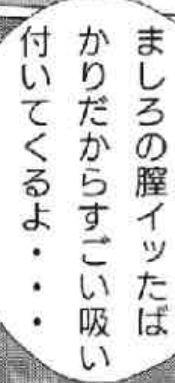 ましろの膣イッたば
かりだからすごい吸い
付いてくるよ・・・